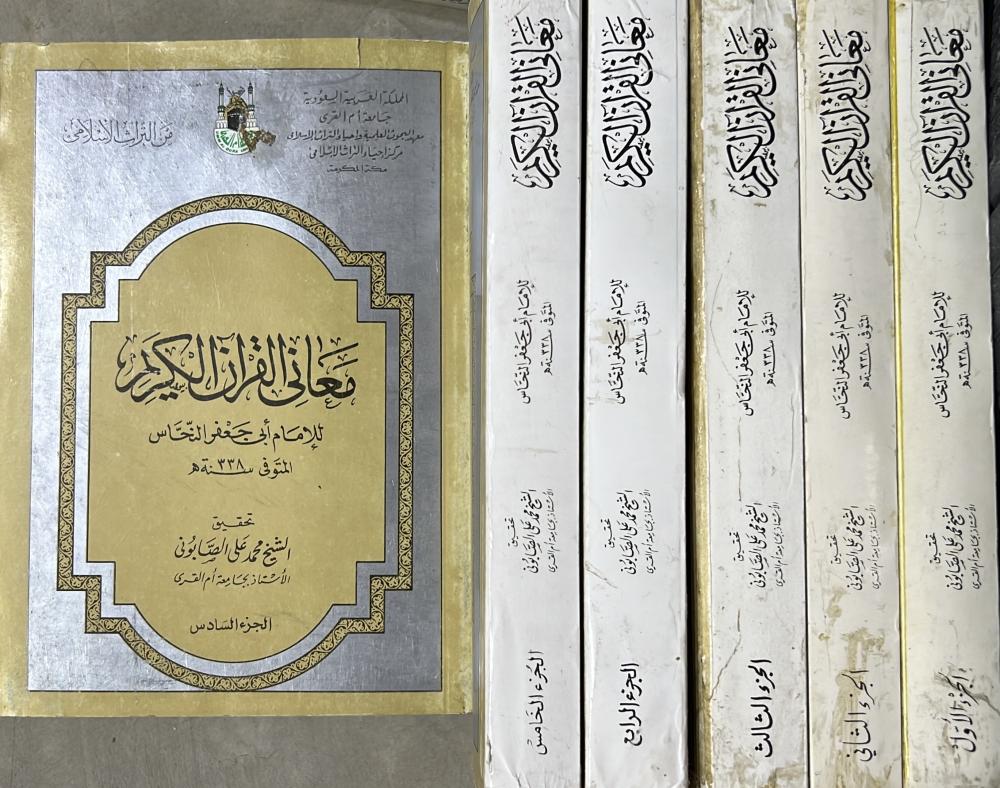 المملكة العربية السعودية
جامعة أم القرى
معهد البحوث العلمية وإحياء التراث الإسلامي
مركز إحياء التراث الإسلامي
مكة المكرمة
من التراث الإسلامي
معاني القرآن الكريم
للإمام أبي جعفر النحاس
المتوفى سنة ٣٣٨ هـ
تحقيق
الشيخ محمد علي الصابوني
الأستاذ بجامعة أم القرى
الجزء السادس
معاني القرآن الكريم
للإمام أبي جعفر النحاس
المتوفى سنة ٣٣٨ هـ
تحقيق
الشيخ محمد علي الصابوني
الأستاذ بجامعة أم القرى
الجزء الأول
معاني القرآن الكريم
للإمام أبي جعفر النحاس
المتوفى سنة ٣٣٨ هـ
تحقيق
الشيخ محمد علي الصابوني
الأستاذ بجامعة أم القرى
الجزء الثاني
معاني القرآن الكريم
للإمام أبي جعفر النحاس
المتوفى سنة ٣٣٨ هـ
تحقيق
الشيخ محمد علي الصابوني
الأستاذ بجامعة أم القرى
الجزء الثالث
معاني القرآن الكريم
للإمام أبي جعفر النحاس
المتوفى سنة ٣٣٨ هـ
تحقيق
الشيخ محمد علي الصابوني
الأستاذ بجامعة أم القرى
الجزء الرابع
معاني القرآن الكريم
للإمام أبي جعفر النحاس
المتوفى سنة ٣٣٨ هـ
تحقيق
الشيخ محمد علي الصابوني
الأستاذ بجامعة أم القرى
الجزء الخامس